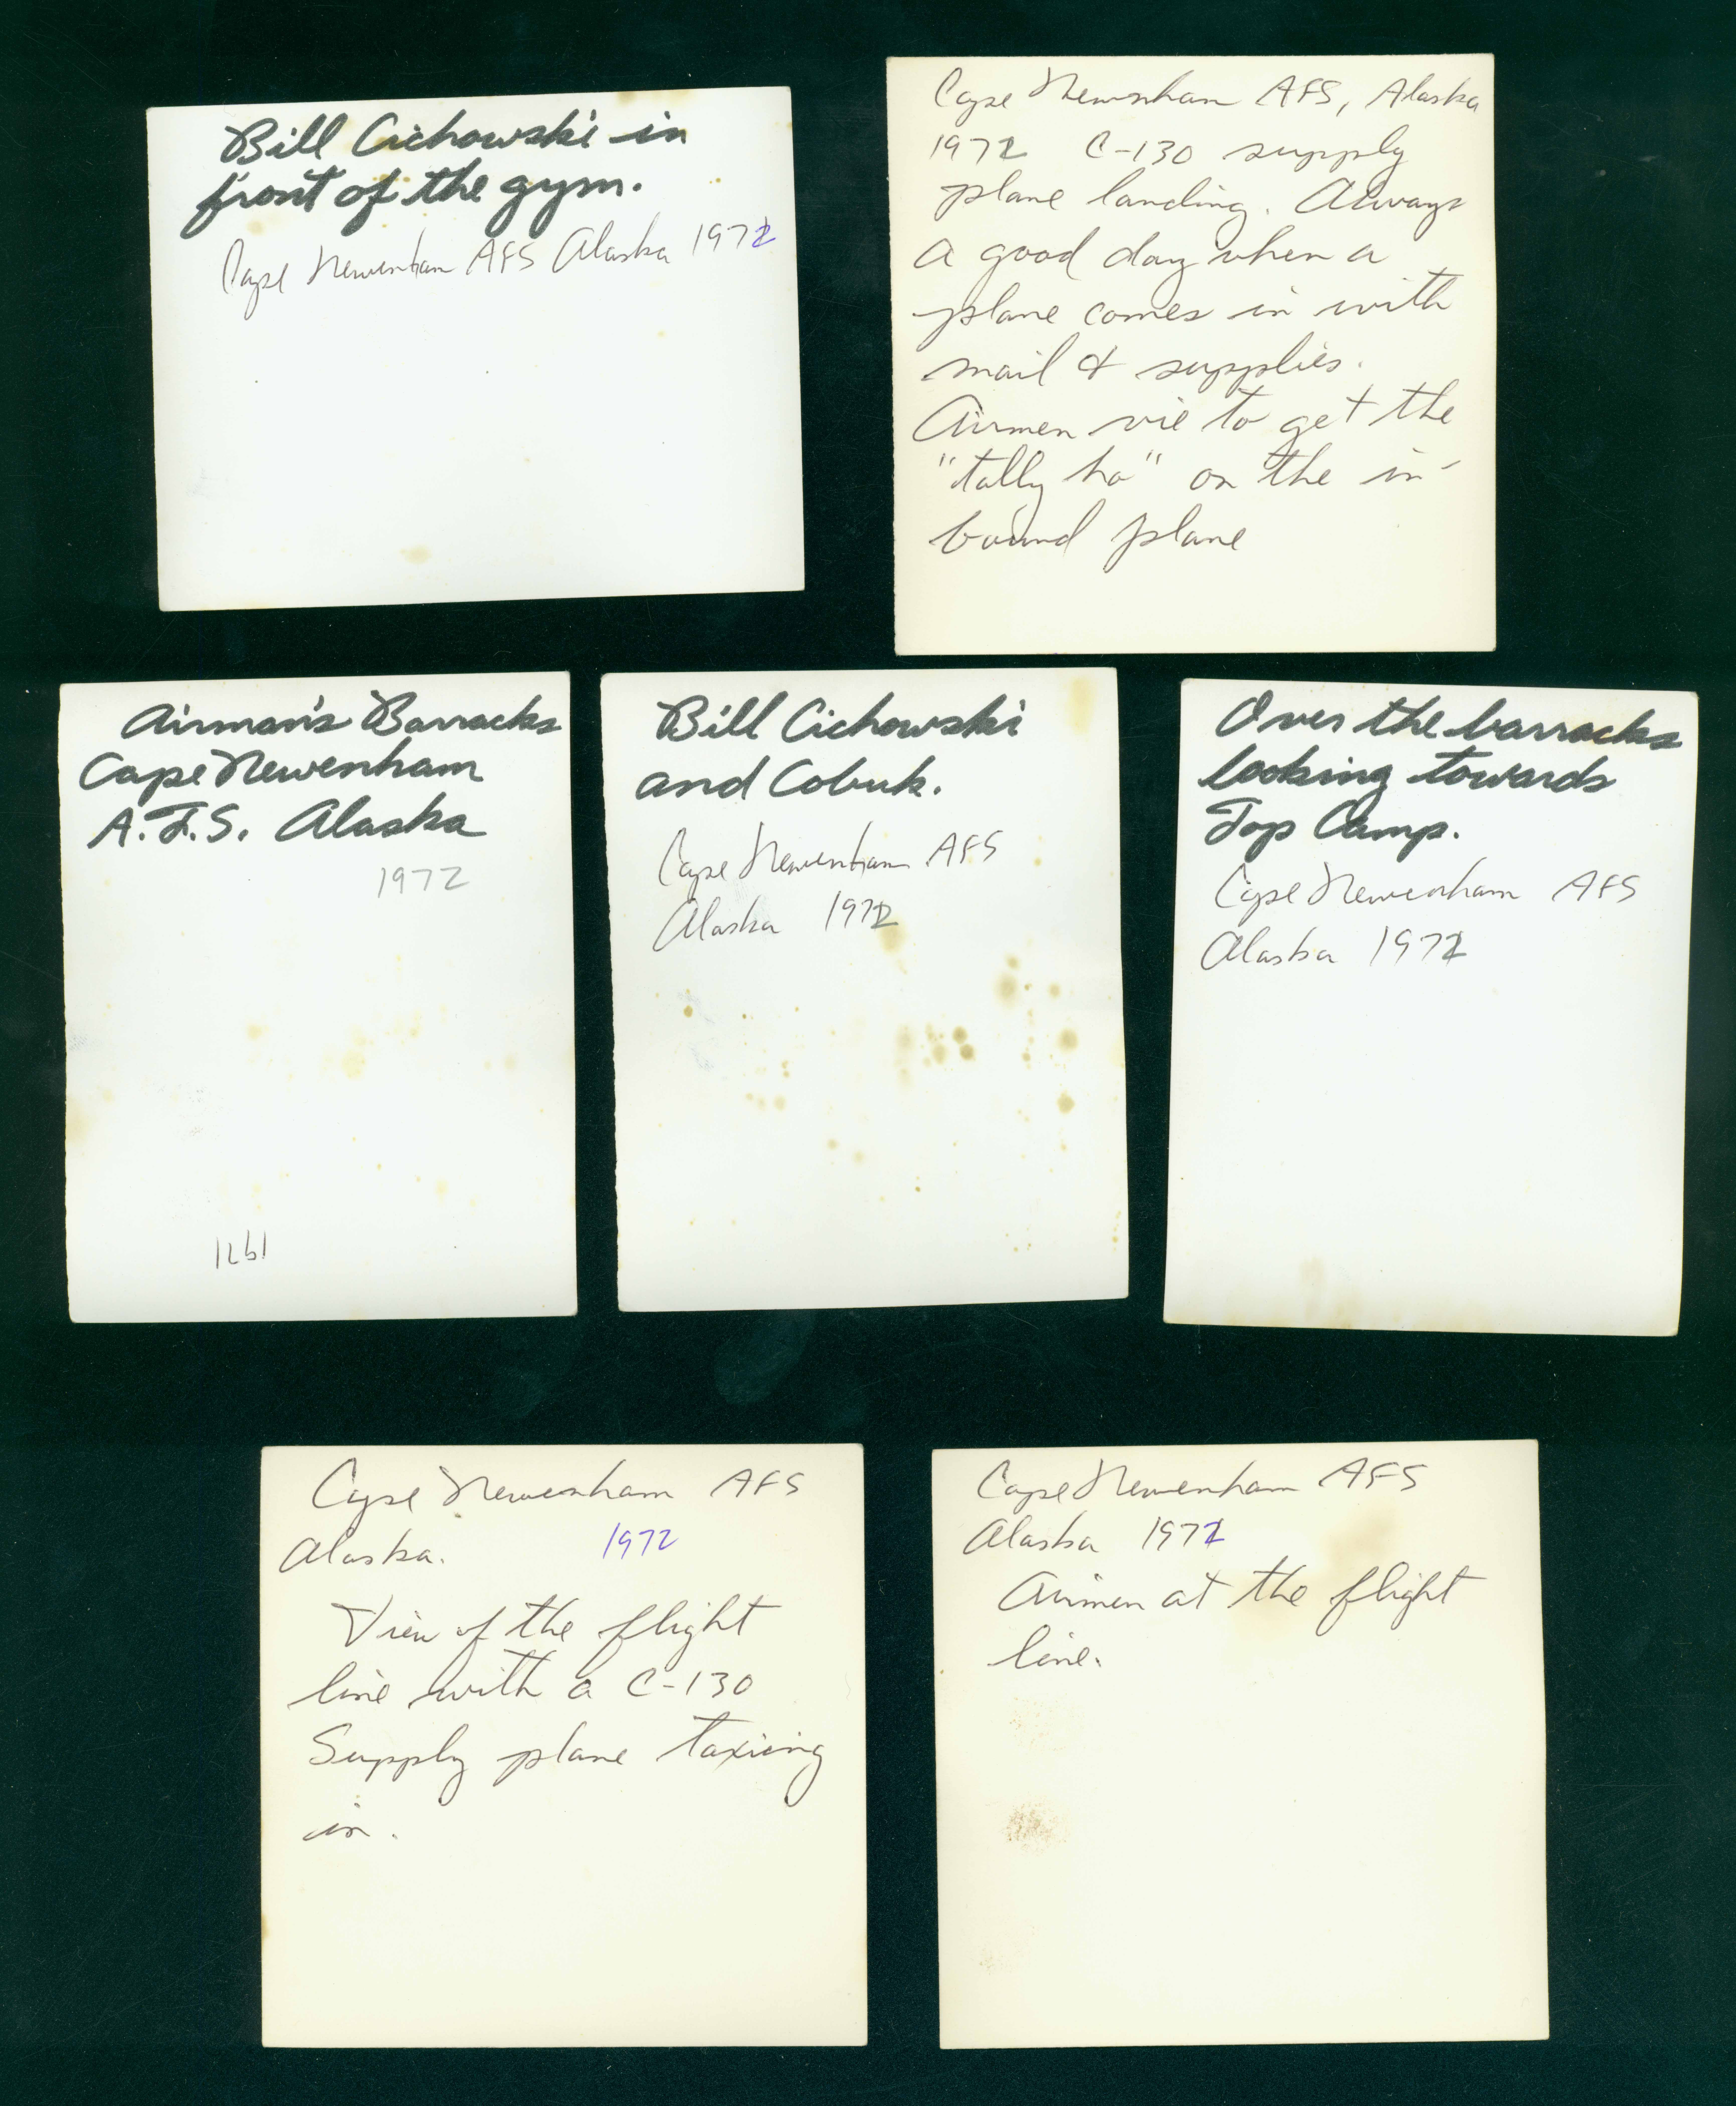 Bill Cichowski in
front of the gym.
Cape Newenham AFS Alaska 1972
Cape Newenham AFS, Alaska
1972 C-130 supply
plane landing. Always
a good day when a
plane comes in with
mail & supplies.
Airmen vie to get the
"tally ho" on the in-
bound plane
Airman's Barracks
Cape Newenham
A.F.S. Alaska
1972
1971
Bill Cichowski
and Cobuk.
Cape Newenham AFS
Alaska 1972
Over the barracks
looking towards
Top Camp.
Cape Newenham AFS
Alaska 1972
Cape Newenham AFS
Alaska. 1972
View of the flight
line with a C-130
Supply plane taxiing
in.
Cape Newenham AFS
Alaska 1972
Airmen at the flight
line.